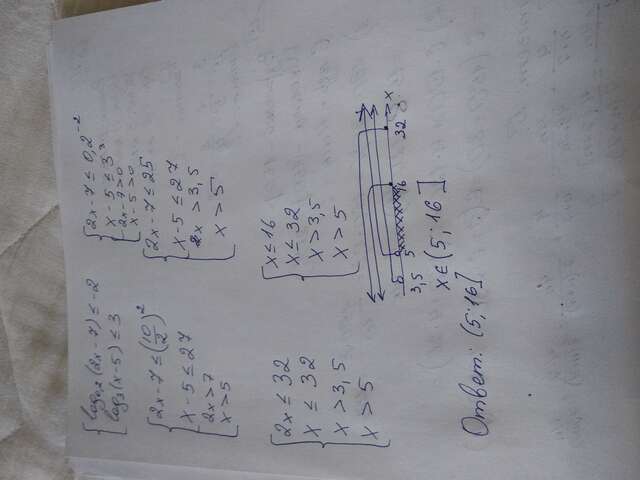 { log₀,₂(2x-7) ≤ -2
log₃(x-5) ≤ 3
{ 2x-7 ≤ 0,2⁻²
x-5 ≤ 3³
2x-7>0
x-5>0
{ 2x-7 ≤ (10/2)²
x-5 ≤ 27
2x>7
x>5
{ 2x-7 ≤ 25
x-5 ≤ 27
x >3,5
x >5
{ 2x ≤ 32
x ≤ 32
x >3,5
x >5
{ x ≤ 16
x ≤ 32
x >3,5
x >5
3,5 5 16 32 x
x∈(5;16]
Ответ: (5;16]